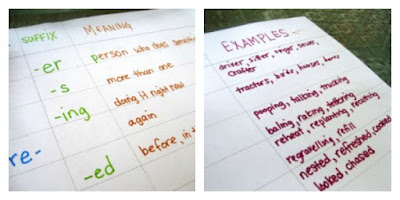 SUFFIX MEANING
-er person who does
-s more than one
-ing doing it right now
re- again
-ed before, in
EXAMPLES
drifter, sifter, singer, sewer,
crafter
tractors, horses, barns
pooping, talking, trucking
baling, raking, tettering
reheat, replanting, reseeding
regravelling, refill
nested, refreshed, cooked
looked, chased